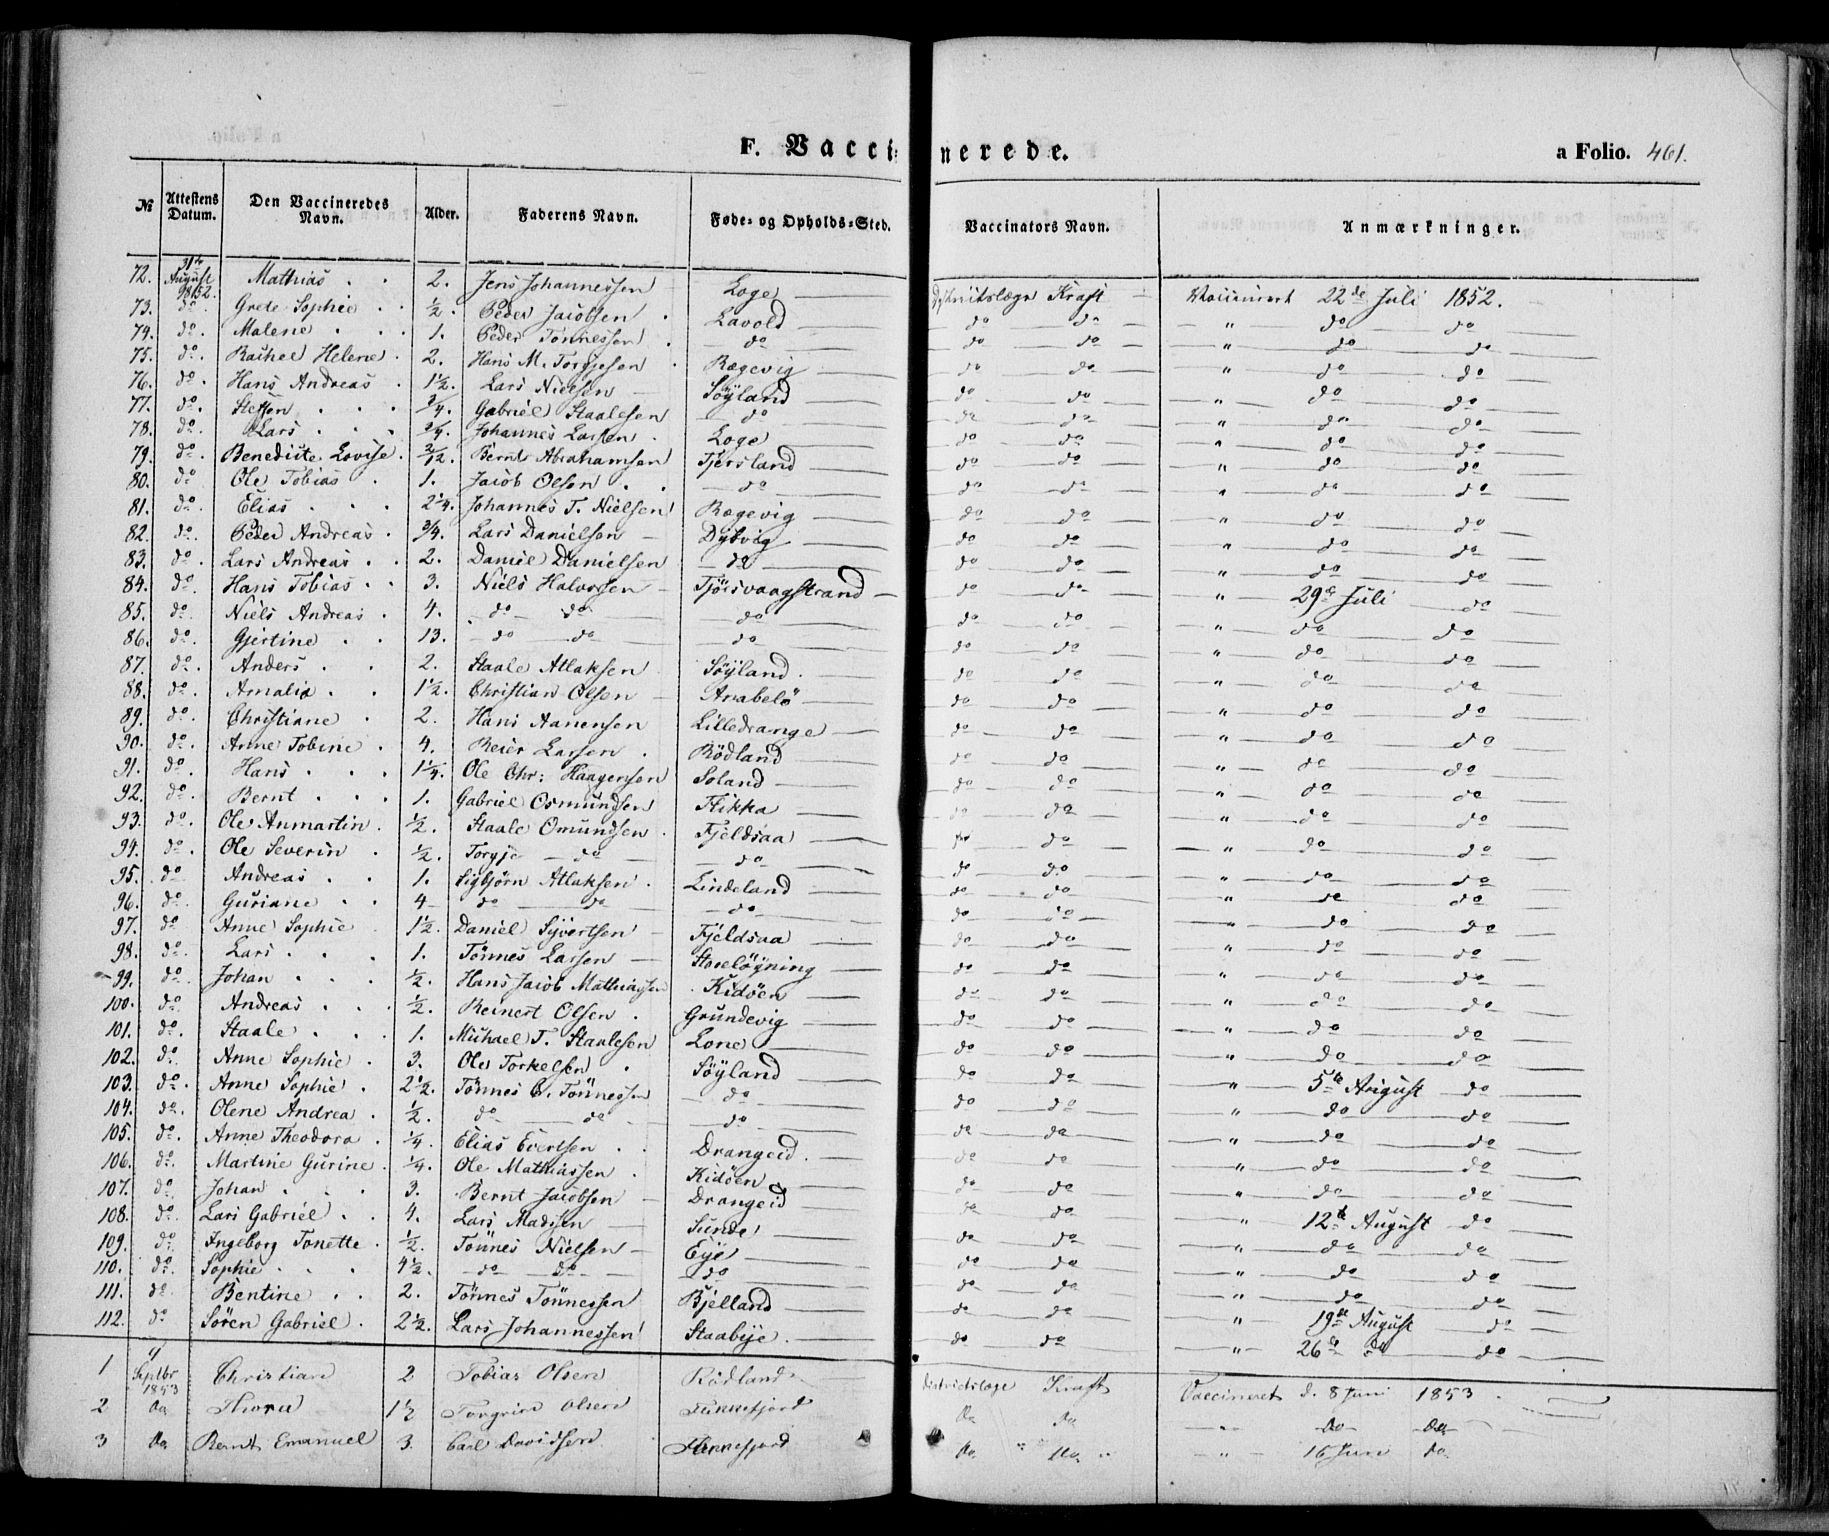 F. Vaccinerede. a Folio. 461.
№ Attestens Datum. Den Vaccineredes Navn. Alder. Faderens Navn. Føde- og Opholds-Sted. Vaccinators Navn. Anmærkninger.
72. 31te August 1852. Mathias 2. Jens Johannessen Loge Distriktslæge Kraft Vaccineret 22de Juli 1852.
73. do. Grete Sophie ½. Peder Jacobsen Lavold do do " do do
74. do. Malene 1. Peder Tönnessen do do do " do do
75. do. Rachel Helene 2. Hans M. Torgjesen Rægevig do do " do do
76. do. Hans Andreas 1½. Lars Nielsen Söyland do do " do do
77. do. Steffen ¾. Gabriel Staalesen do do do " do do
78. do. Lars ¾. Johannes Larsen Loge do do " do do
79. do. Benedicte Lovise /12. Bernt Abrahamsen Tjersland do do " do do
80. do Ole Tobias 1. Jacob Olsen do do do " do do
81. do. Elias 2¼. Johannes T. Nielsen Rægevig do do " do do
82. do. Peder Andreas ¾. Lars Danielsen Dybvig do do " do do
83. do. Lars Andreas 2. Daniel Danielsen do do do " do do
84. do. Hans Tobias 3. Niels Halvorsen Tjörsvaagstrand do do " 29de Juli do
85. do. Niels Andreas 4. do do do do do " do do
86. do. Gjertine 13. do do do do do " do do
87. do. Anders 2. Staale Atlaksen Söyland. do do " do do
88. do. Amalia 1½. Christian Olsen Anabelö do do " do do
89. do. Christiane 2. Hans Aanensen Lilledrange do do " do do
90. do. Anne Tobine 4. Reier Larsen Rödland do do " do do
91. do. Hans 1¼. Ole Chr: Haagensen Soland do do " do do
92. do. Bernt 1. Gabriel Osmundsen Flikka do do " do do
93. do. Ole Anmartin ½. Staale Omundsen Fjeldsaa do do " do do
94. do. Ole Severin ½. Torgje do do do do " do do
95. do Andreas 1. Sigbjörn Atlaksen Lindeland do do " do do
96. do. Guriane 4 do do do do do " do do
97. do Anne Sophie 1½. Daniel Syvertsen Fjeldsaa do do " do do
98. do. Lars 1. Tönnes Larsen Storelögning do do " do do
99. do. Johan ½. Hans Jacob Mathiassen Kidöen do do " do do
100. do Andreas ½. Reinert Olsen Grundevig do do " do do
101. do. Staale 1. Michael T. Staalesen Lone do do " do do
102. do. Anne Sophie 3. Ole Torkelsen Söyland do do " do do
103. do. Anne Sophie 2½. Tönnes C. Tönnessen do do do " 5te August do
104. do. Olene Andrea ½. do do do do do " do do
105. do. Anne Theodora ¼. Elias Evertsen Drangeid. do do " do do
106. do. Martine Gurine ¼. Ole Mathiassen Kidöen do do " do do
107. do Johan 3. Bernt Jacobsen Drangeid do do " do do
108. do. Lars Gabriel 4. Lars Madssen Sunde do do " 12te August do
109. do Ingeborg Tonette ½. Tönnes Nielsen Eye do do " do do
110. do. Sophie 4½. do do do do do " do do
111. do Bentine 2. Tönnes Tönnessen Bjelland do do " do do
112. do Sören Gabriel 2½. Lars Johannessen Staabye. do do " 19de August do
" 26de do do
1 Septbr 1853 Christian 2 Tobias Olsen Rödland Districtslæge Kraft Vaccineret d. 8 Juni 1853
2 Do Thora 1½ Torgrim Olsen Flikkefjord Do Do " Do Do
3 Do Bernt Emanuel 3. Carl Davidsen Flekkefjord Do " Do " " 16 Juni do